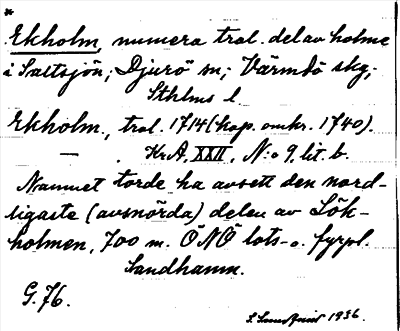 *
Ekholm, numera tral. del av holme
i Saltsjön; Djurö sn; Värmdö skg;
Sthlms l.
Ekholm, tral. 1714 (kop. omkr. 1740).
— . Kr.A. XXII, N:o 9, lit. b.
Namnet torde ha avsett den nord-
ligaste (avsnörda) delen av Lök-
holmen, 700 m. ÖNÖ lots- o. fyrpl.
Sandhamn.
G. 76.
1936